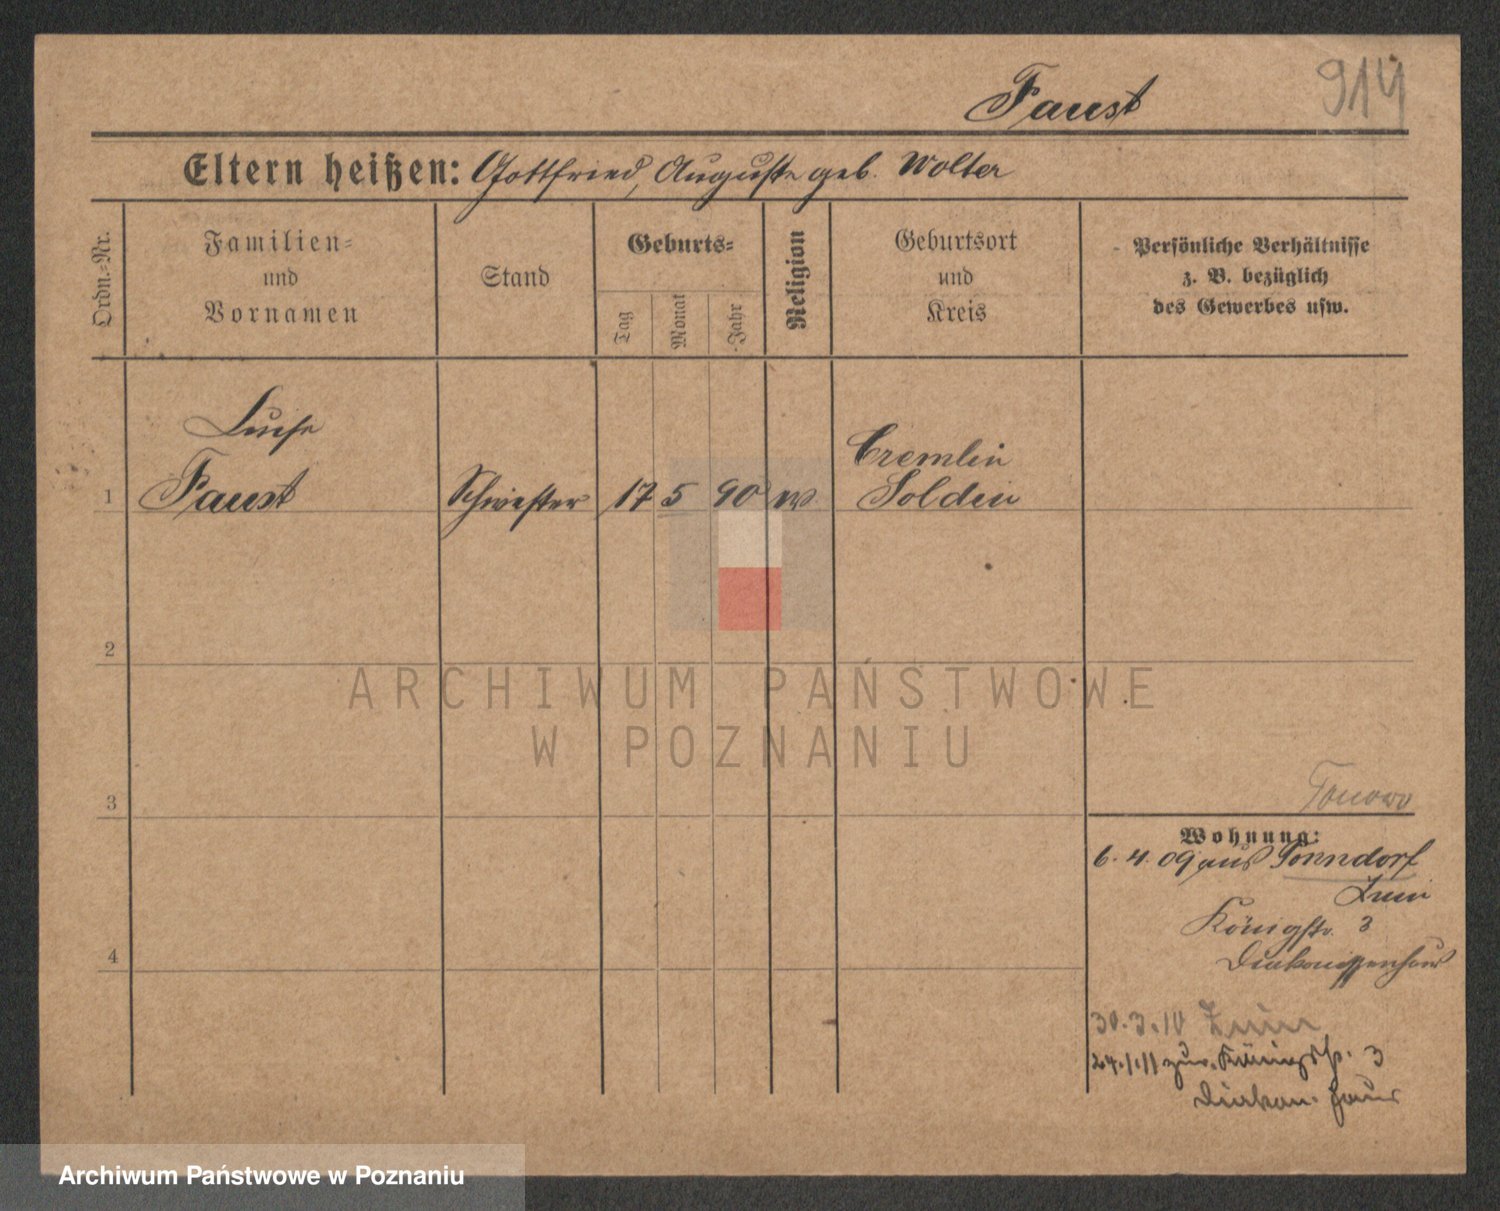 914
Faust
Eltern heißen: Gottfried, Auguste geb. Wolter
Ordn.-Nr.
Familien-
und
Vornamen
Stand
Geburts-
Tag
Monat
-Jahr
Religion
Geburtsort
und
Kreis
Persönliche Verhältnisse
z. B. bezüglich
des Gewerbes usw.
Luise
Cremlin
1 Faust Schwester 17 5 90 ev. Soldin
2
3
4
Tonowo
Wohnung:
6.4.09 aus Tonndorf
Znin
Königstr. 3
Diakonissenhaus
30.3.10 Znin
24.1.11 zur. Königstr. 3
Diakon. haus
ARCHIWUM PAŃSTWOWE
W POZNANIU
Archiwum Państwowe w Poznaniu